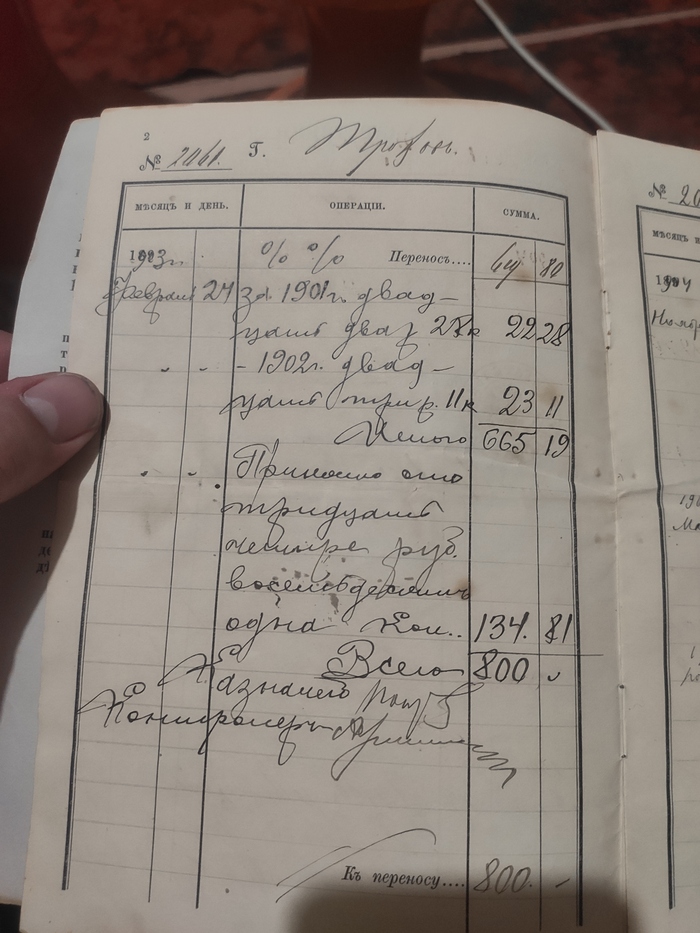 2
№ 2061. Г.
МѢСЯЦЪ И ДЕНЬ. ОПЕРАЦІИ. СУММА.
1903 г. % % Переносъ.... 80
Февраля 24 за 1901 г. двад-
цать два р 28 к 22 28
" " - 1902 г. двад-
цать три р. 11 к 23 11
Итого 665 19
" " Приносъ сто
тридцать
четыре руб.
восемьдесятъ
одна коп.. 134. 81
Всего 800 "
Казначей
Контролеръ
Къ переносу.... 800. -
№ 20
МѢСЯЦЪ И
1904
Ноябр
190
1